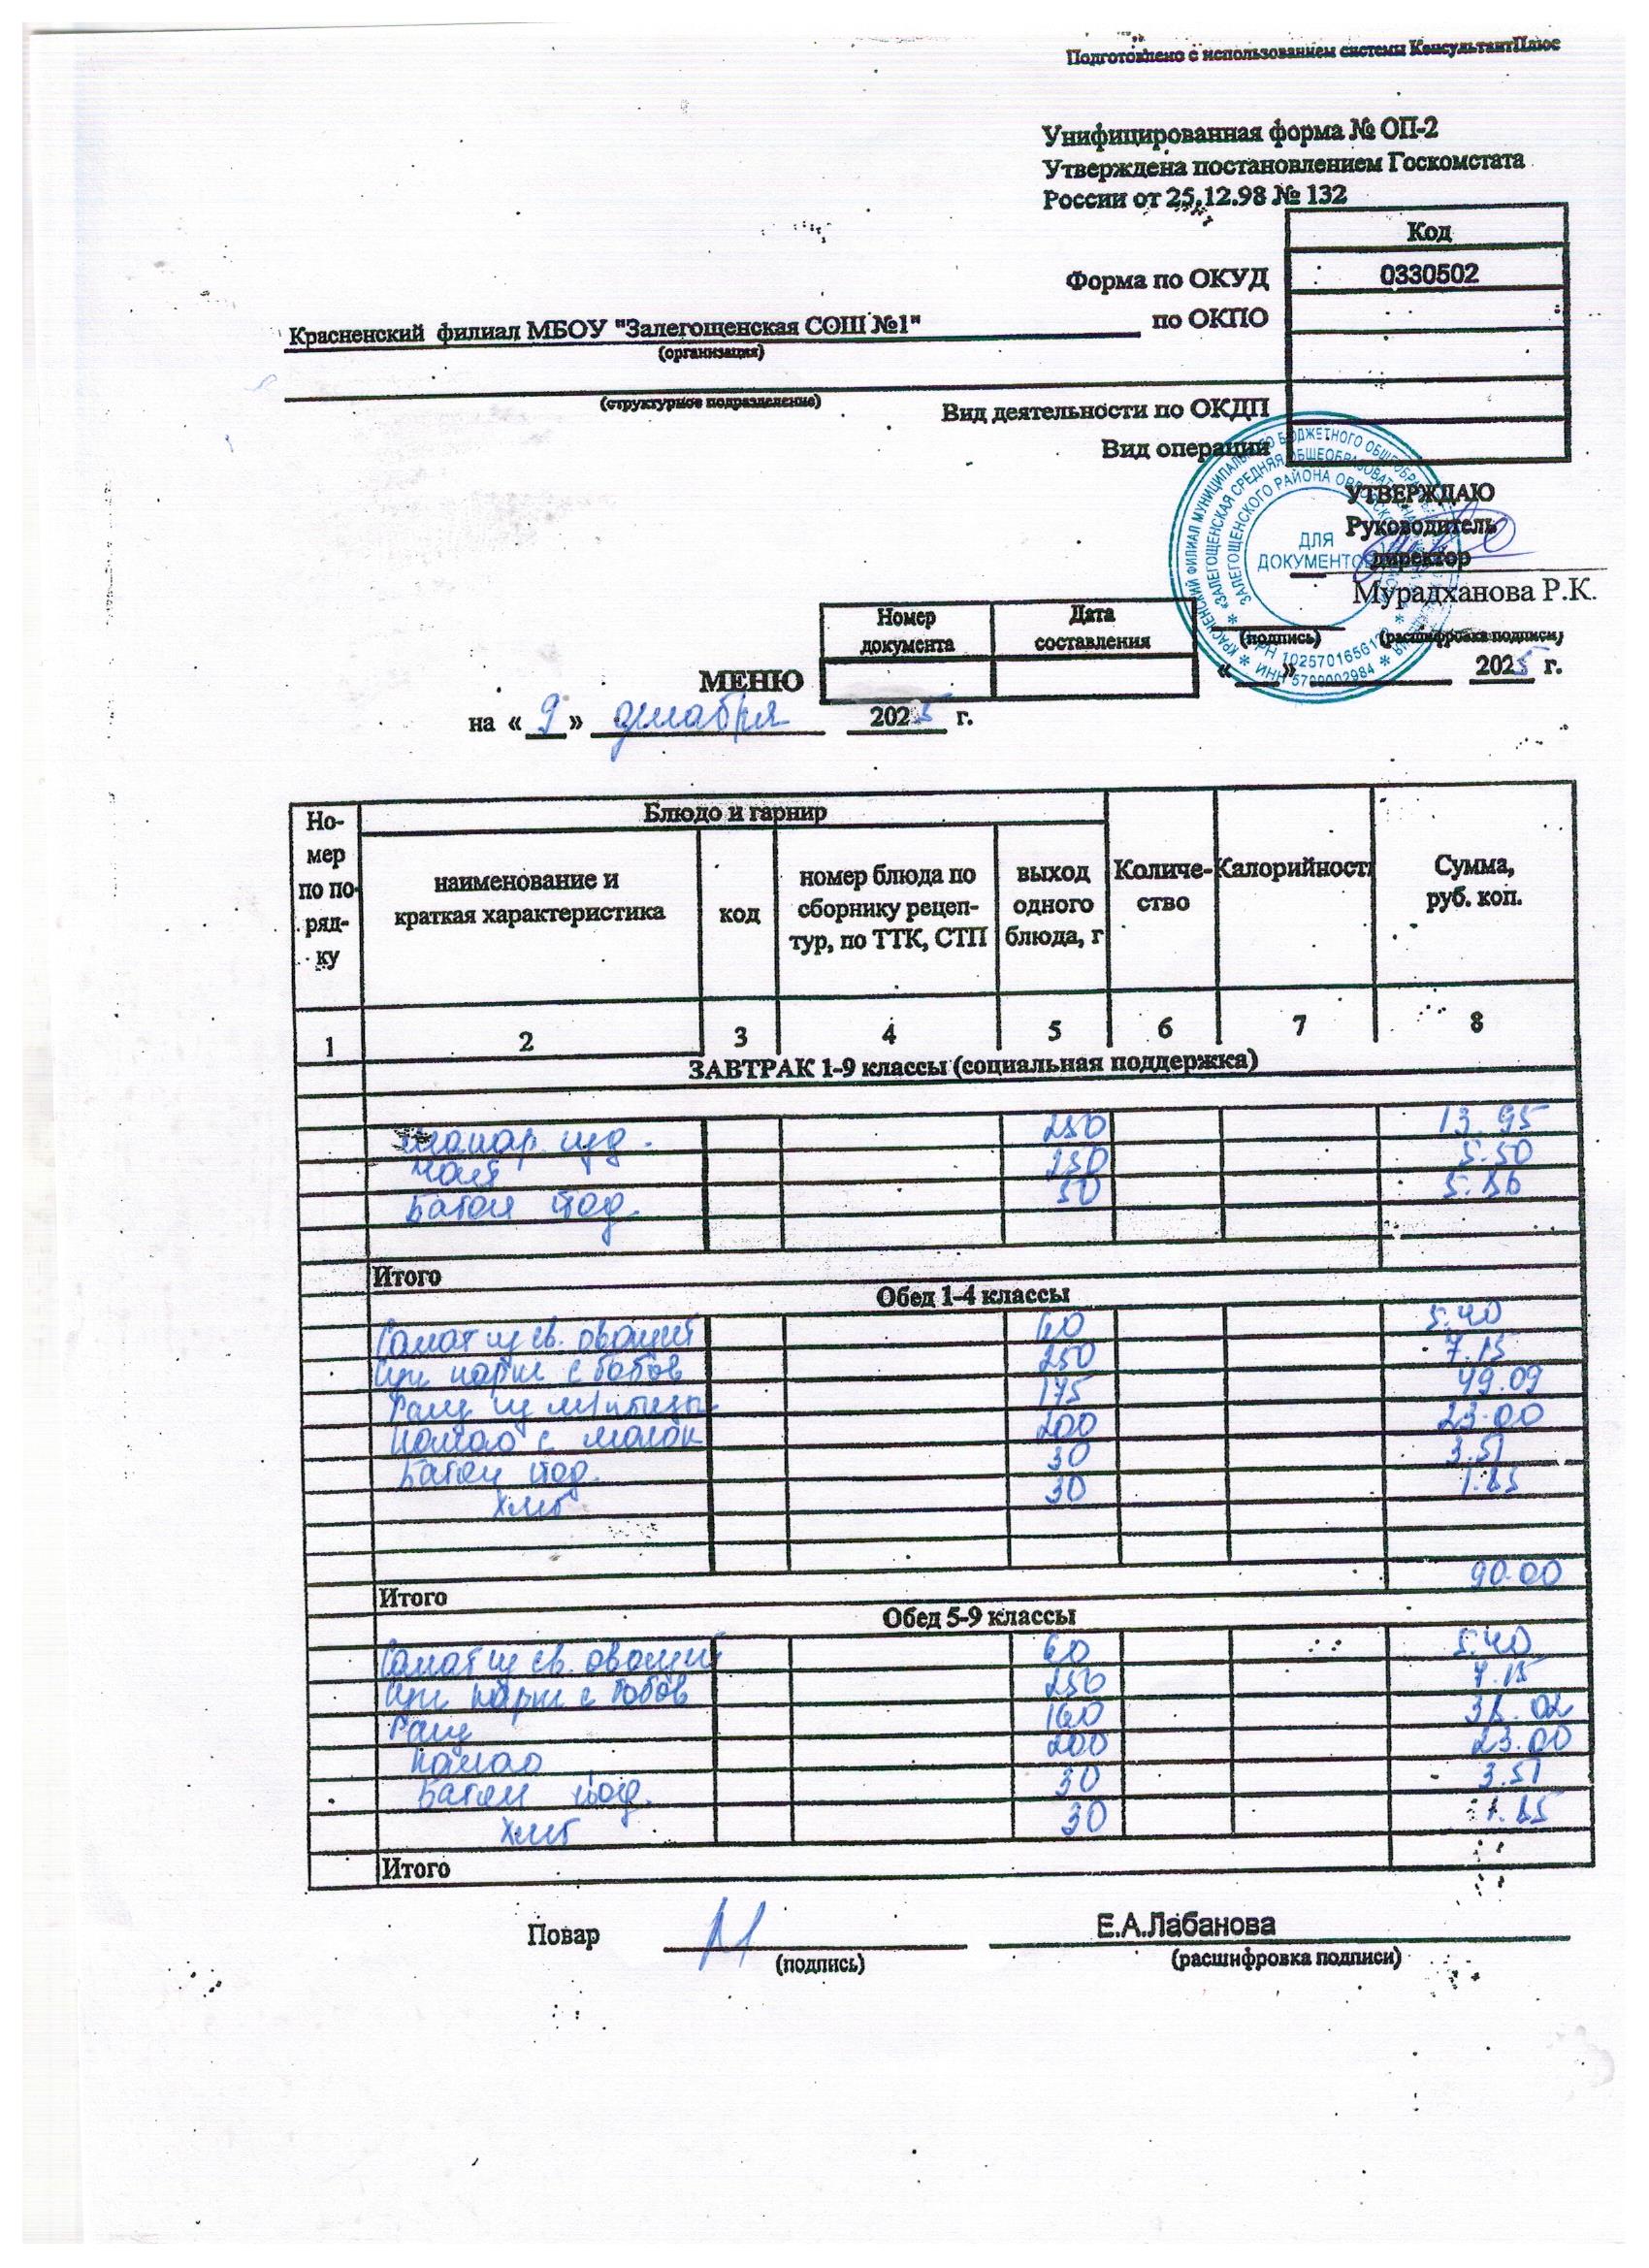 Подготовлено с использованием системы КонсультантПлюс
Унифицированная форма № ОП-2
Утверждена постановлением Госкомстата
России от 25.12.98 № 132
Код
Форма по ОКУД 0330502
Красненский филиал МБОУ "Залегощенская СОШ №1" по ОКПО
(организация)
(структурное подразделение)
Вид деятельности по ОКДП
Вид операции
УТВЕРЖДАЮ
Руководитель
директор
ДЛЯ
ДОКУМЕНТОВ
Мурадханова Р.К.
(подпись) (расшифровка подписи)
« » 2025 г.
Номер документа Дата составления
МЕНЮ
на « 9 » декабря 2025 г.
Но-мер по по-ряд-ку
Блюдо и гарнир
наименование и краткая характеристика
код
номер блюда по сборнику рецеп-тур, по ТТК, СТП
выход одного блюда, г
Количе-ство
Калорийность
Сумма, руб. коп.
1 2 3 4 5 6 7 8
ЗАВТРАК 1-9 классы (социальная поддержка)
250 13.95
Чай 5.50
Батон йод. 50 5.86
Итого
Обед 1-4 классы
Салат из св. овощей 60 5.40
с бобов 250 7.15
Рагу из м/птицы 175 49.09
Какао с молок 200 23.00
Батон йод. 30 3.51
Хлеб 30 1.85
Итого 90.00
Обед 5-9 классы
Салат из св. овощей 60 5.40
с бобов 250 7.15
Рагу 160 38.02
Какао 200 23.00
Батон йод. 30 3.51
Хлеб 30 1.85
Итого
Повар Е.А.Лабанова
(подпись) (расшифровка подписи)